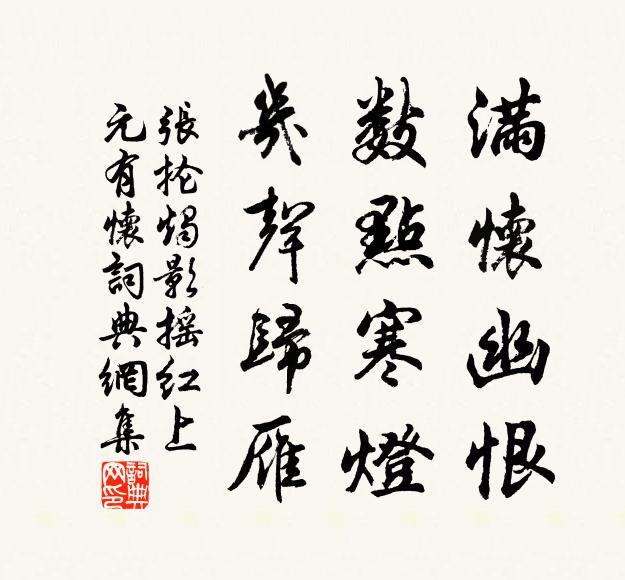 滿懷幽恨
數點寒燈
幾聲歸雁
張掄燭影搖紅上
元有懷詞典網集
詞典
网印